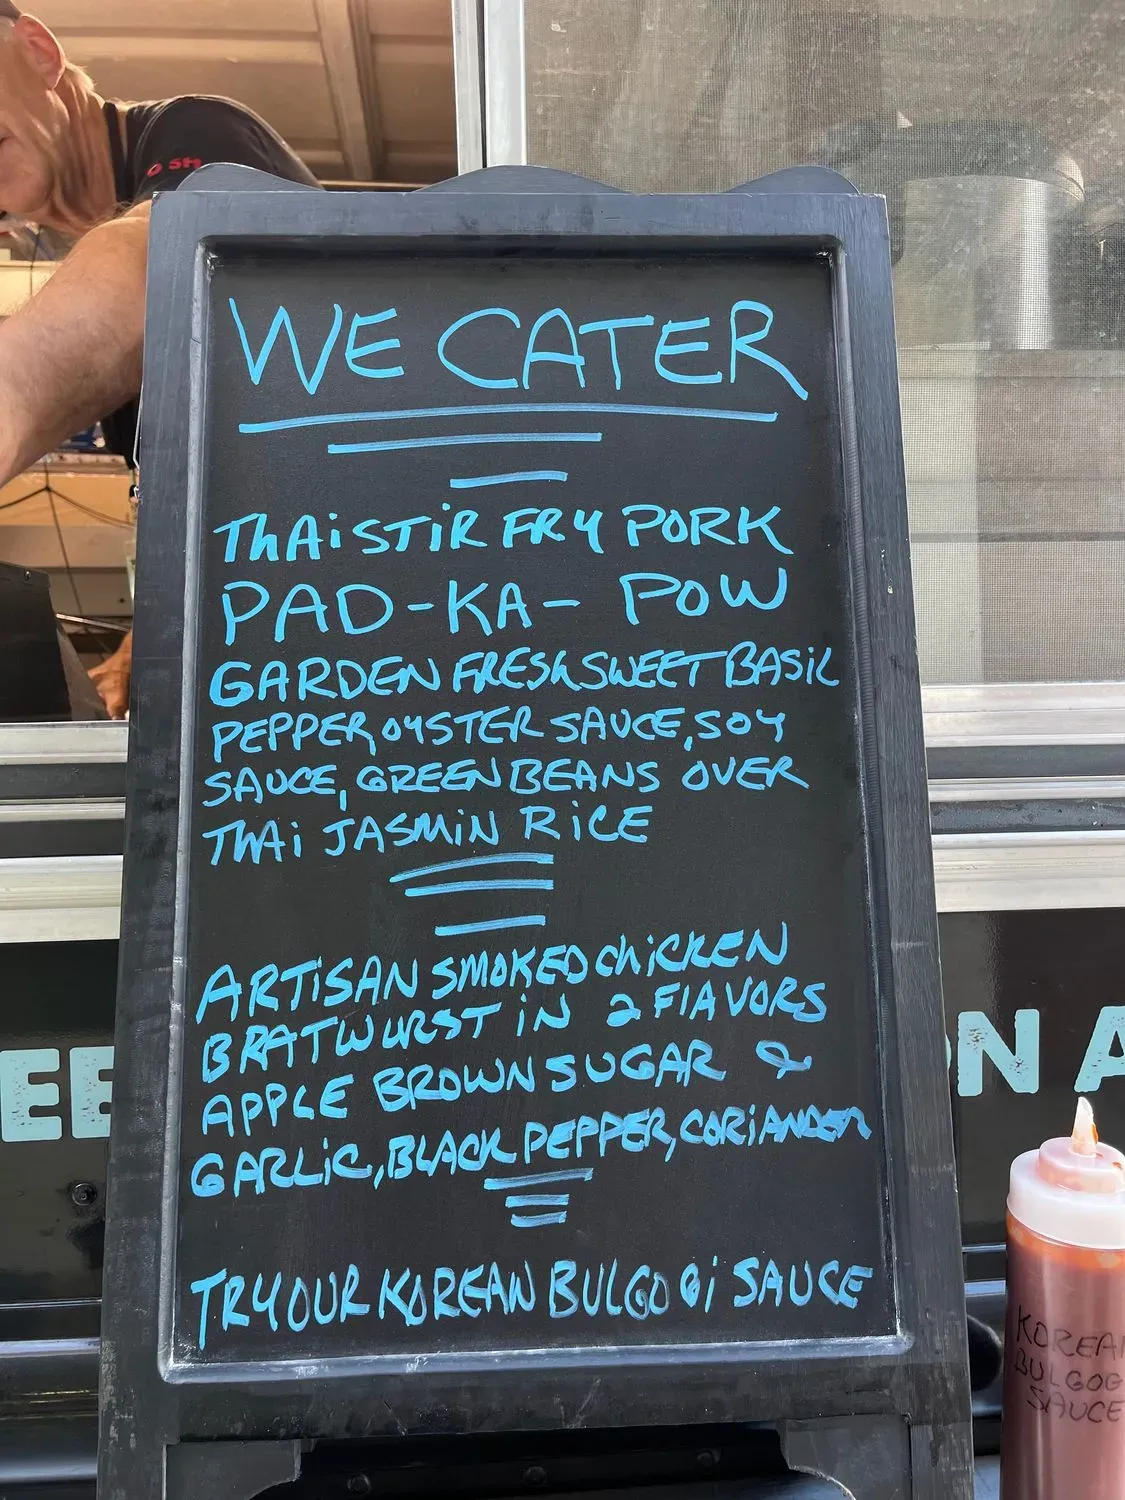 WE CATER
THAI STIR FRY PORK
PAD-KA-POW
GARDEN FRESH SWEET BASIL
PEPPER, OYSTER SAUCE, SOY
SAUCE, GREEN BEANS OVER
THAI JASMIN RICE
ARTISAN SMOKED CHICKEN
BRATWURST IN 2 FLAVORS
APPLE BROWN SUGAR &
GARLIC, BLACK PEPPER, CORIANDER
TRY OUR KOREAN BULGOGI SAUCE
KOREAN
BULGOG
SAUCE